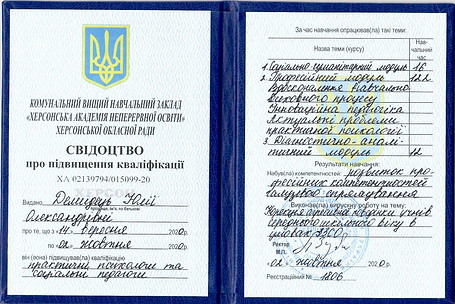 КОМУНАЛЬНИЙ ВИЩИЙ НАВЧАЛЬНИЙ ЗАКЛАД
«ХЕРСОНСЬКА АКАДЕМІЯ НЕПЕРЕРВНОЇ ОСВІТИ»
ХЕРСОНСЬКОЇ ОБЛАСНОЇ РАДИ
СВІДОЦТВО
про підвищення кваліфікації
ХА 02139794/015099-20
ХЕРСОН
Видано Демидець Юлії
Олександрівні
про те, що з 14 вересня 2020р.
по 02 жовтня 2020р.
він (вона) підвищував(ла) кваліфікацію
практичні психологи та
соціальні педагоги
За час навчання опрацював(ла) такі теми:
Назва теми (курсу)
Нав-
чальний
час
1. Соціально-гуманітарний модуль 16
2. Професійний модуль 122
Вдосконалення навчально-
виховного процесу
Інноваційна педагогіка
Актуальні проблеми
практичної психології
3. Діагностично-аналі-
тичний модуль 12
Результати навчання:
Набув(ла) компетентностей: розвиток про-
фесійних компетентностей
галузевого спрямування
Виконав(ла) випускну роботу на тему:
Корекція агресивної поведінки учнів
середнього шкільного віку в
умовах ЗЗСО
Ректор
М.П.
02 жовтня 2020р.
Реєстраційний № 1806